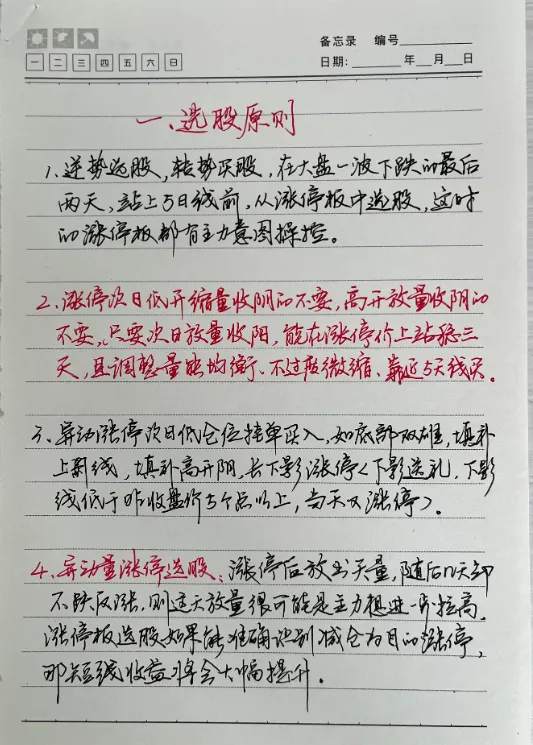 备忘录 编号
一 二 三 四 五 六 日
日期: 年 月 日
一、选股原则
1、逆势选股,转势买股,在大盘一波下跌的最后
两天,站上5日线前,从涨停板中选股,这时
的涨停板都有主力意图操控。
2、涨停次日低开缩量收阴的不要,高开放量收阴的
不要,只要次日放量收阳,能在涨停价上站稳三
天,且调整量能均衡、不过度微缩、靠近5天线买。
3、异动涨停次日低仓位挂单买入,如底部双雄,填补
上影线,填补高开阴,长下影涨停<下影送礼,下影
线低于昨收盘价5个点以上,当天又涨停>。
4、异动量涨停选股:涨停后放出天量,随后几天却
不跌反涨,则这天放量很可能是主力想进一步拉高,
涨停板选股如果能准确识别减仓为目的涨停,
那短线收益将会大幅提升。